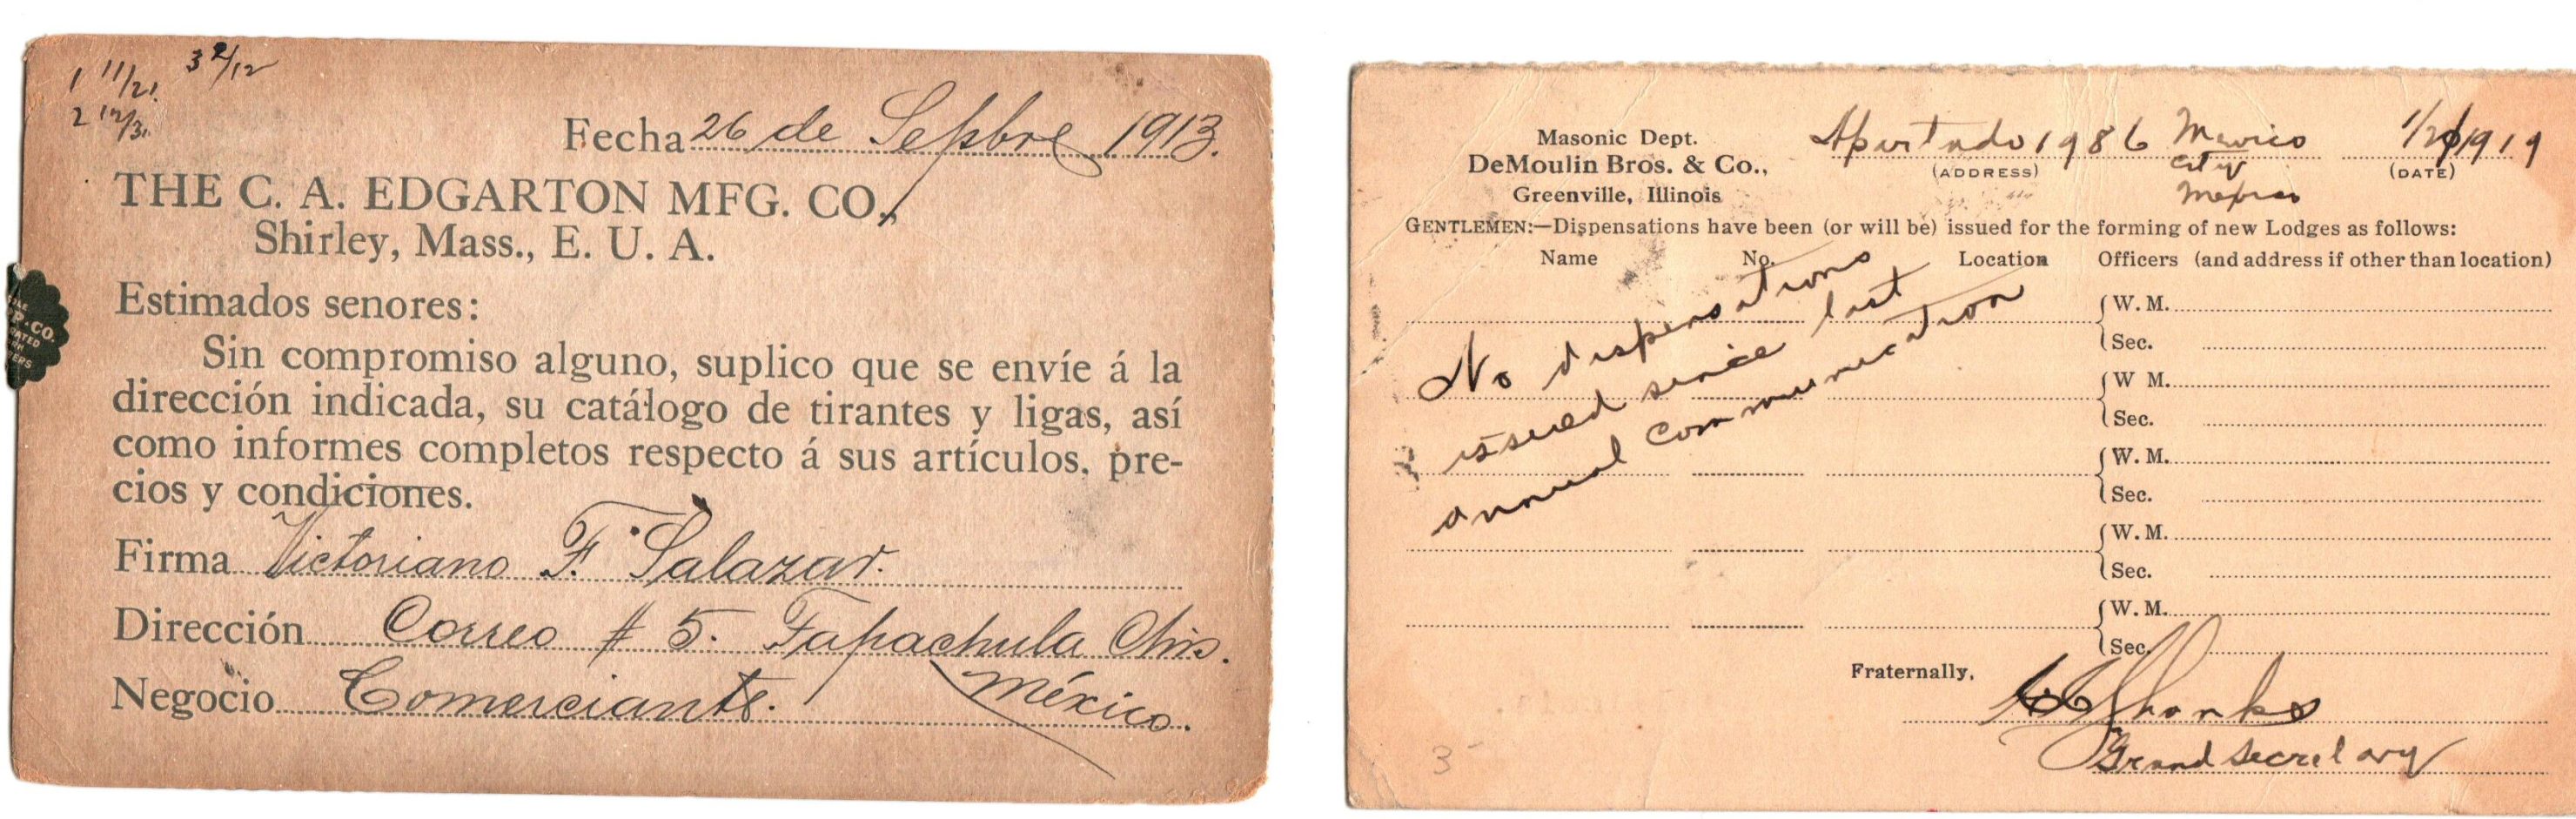 1 11/21. 3 2/12
2 12/31.
Fecha 26 de Sepbre 1913.
THE C. A. EDGARTON MFG. CO.,
Shirley, Mass., E. U. A.
Estimados senores:
Sin compromiso alguno, suplico que se envíe á la
dirección indicada, su catálogo de tirantes y ligas, así
como informes completos respecto á sus artículos, pre-
cios y condiciones.
Firma Victoriano F. Salazar.
Dirección Correo # 5. Tapachula Chis.
México.
Negocio Comerciante.
P. CO.
Masonic Dept.
DeMoulin Bros. & Co.,
Greenville, Illinois
Apartado 1986 Mexico
City
Mexico
(ADDRESS)
1919
(DATE)
GENTLEMEN:—Dispensations have been (or will be) issued for the forming of new Lodges as follows:
Name No. Location Officers (and address if other than location)
No dispensations
issued since last
annual communication
W. M.
Sec.
W M.
Sec.
W. M.
Sec.
W. M.
Sec.
W. M.
Sec.
Fraternally,
Shanks
Grand Secretary
3